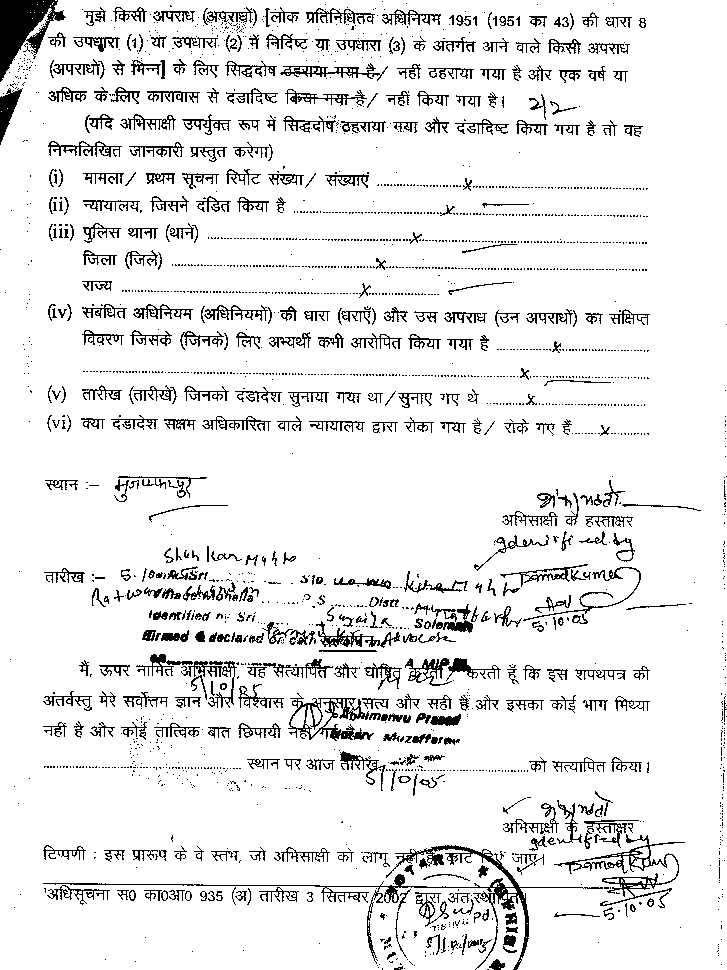 मुझे किसी अपराध (अपराधों) [लोक प्रतिनिधित्व अधिनियम 1951 (1951 का 43) की धारा 8
की उपधारा (1) या उपधारा (2) में निर्दिष्ट या उपधारा (3) के अंतर्गत आने वाले किसी अपराध
(अपराधों) से भिन्न] के लिए सिद्धदोष ठहराया गया है/ नहीं ठहराया गया है और एक वर्ष या
अधिक के लिए कारावास से दंडादिष्ट किया गया है/ नहीं किया गया है।
(यदि अभिसाक्षी उपर्युक्त रूप में सिद्धदोष ठहराया गया और दंडादिष्ट किया गया है तो वह
निम्नलिखित जानकारी प्रस्तुत करेगा)
(i) मामला/ प्रथम सूचना रिर्पोट संख्या/ संख्याएं x
(ii) न्यायालय, जिसने दंडित किया है x
(iii) पुलिस थाना (थाने) x
जिला (जिले) x
राज्य x
(iv) संबंधित अधिनियम (अधिनियमों) की धारा (धराएँ) और उस अपराध (उन अपराधों) का संक्षिप्त
विवरण जिसके (जिनके) लिए अभ्यर्थी कभी आरोपित किया गया है x
x
(v) तारीख (तारीखें) जिनको दंडादेश सुनाया गया था/सुनाए गए थे x
(vi) क्या दंडादेश सक्षम अधिकारिता वाले न्यायालय द्वारा रोका गया है/ रोके गए हैं x
स्थान :– मुजफ्फरपुर
अभिसाक्षी के हस्ताक्षर
Identified by
Shankar Mahto
तारीख :–
P.S. Distt
5.10.05
Identified by Sri
Affirmed & declared on oath Advocate
मैं, ऊपर नामित अभिसाक्षी, यह सत्यापित और घोषित करता/ करती हूँ कि इस शपथपत्र की
5/10/05
अंतर्वस्तु मेरे सर्वोत्तम ज्ञान और विश्वास के अनुसार सत्य और सही है और इसका कोई भाग मिथ्या
Abhimanyu Prasad
नहीं है और कोई तात्विक बात छिपायी नहीं गई है।
स्थान पर आज तारीख 5/10/05 को सत्यापित किया।
अभिसाक्षी के हस्ताक्षर
Identified by
टिप्पणी : इस प्रारूप के वे स्तंभ, जो अभिसाक्षी को लागू नहीं हैं काट दिए जाएं।
अधिसूचना स0 का0आ0 935 (अ) तारीख 3 सितम्बर 2002 द्वारा अंतःस्थापित।
5.10.05
NOTARY